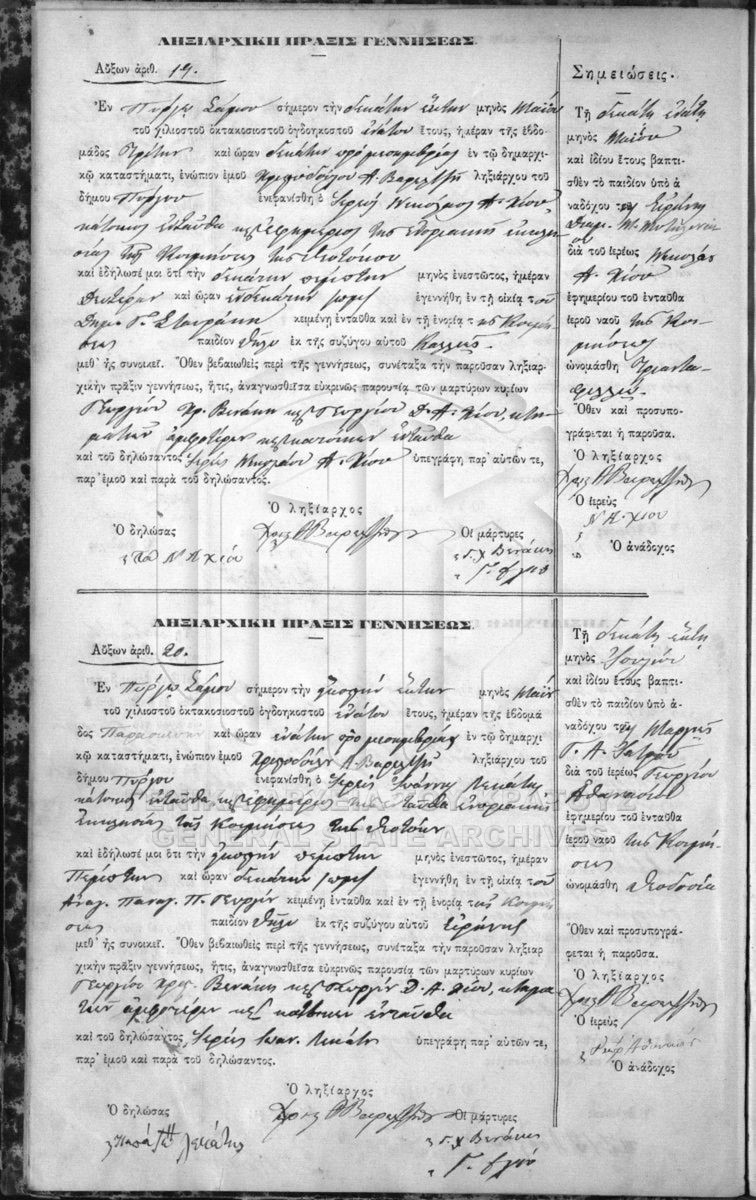 ΛΗΞΙΑΡΧΙΚΗ ΠΡΑΞΙΣ ΓΕΝΝΗΣΕΩΣ
Αὔξων ἀριθ. 19.
Ἐν Πύργῳ Σάμου σήμερον τὴν δεκάτην ἕκτην μηνὸς Μαΐου
τοῦ χιλιοστοῦ ὀκτακοσιοστοῦ ὀγδοηκοστοῦ ἐνάτου ἔτους, ἡμέραν τῆς ἑβδο-
μάδος Τρίτην καὶ ὥραν δεκάτην πρὸ μεσημβρίας ἐν τῷ δημαρχι-
κῷ καταστήματι, ἐνώπιον ἐμοῦ ληξιάρχου τοῦ
δήμου Πύργου ἐνεφανίσθη ὁ Ἱερεὺς Νικόλαος Α. Χίου
κάτοικος ἐνταῦθα κ ἐφημέριος τῆς ἐνοριακῆς ἐκκλη-
σίας τῆς Κοιμήσεως τῆς Θεοτόκου
καὶ ἐδήλωσέ μοι ὅτι τὴν δεκάτην πέμπτην μηνὸς ἐνεστῶτος, ἡμέραν
Δευτέραν καὶ ὥραν ἑνδεκάτην ἐγεννήθη ἐν τῇ οἰκίᾳ τοῦ
Δημ. Γ. κειμένῃ ἐνταῦθα καὶ ἐν τῇ ἐνορίᾳ τῆς Κοιμή-
σεως παιδίον θῆλυ ἐκ τῆς συζύγου αὐτοῦ
μεθ᾽ ἧς συνοικεῖ. Ὅθεν βεβαιωθεὶς περὶ τῆς γεννήσεως, συνέταξα τὴν παροῦσαν ληξιαρ-
χικὴν πρᾶξιν γεννήσεως, ἥτις, ἀναγνωσθεῖσα εὐκρινῶς παρουσίᾳ τῶν μαρτύρων κυρίων
Γεωργίου Χρ. Βενάκη κ Γεωργίου Δ. Α. Χίου, κτη-
ματιῶν ἀμφοτέρων κ κατοίκων ἐνταῦθα
καὶ τοῦ δηλώσαντος Ἱερέως Νικολάου Α. Χίου ὑπεγράφη παρ᾽ αὐτῶν τε,
παρ᾽ ἐμοῦ καὶ παρὰ τοῦ δηλώσαντος.
Ὁ ληξίαρχος
Ὁ δηλώσας
Οἱ μάρτυρες
Ν Α Χίου
Γ. Χ Βενάκης
Σημειώσεις.
Τῇ δεκάτῃ ἐνάτῃ
μηνὸς Μαΐου
καὶ ἰδίου ἔτους βαπτι-
σθὲν τὸ παιδίον ὑπὸ ἀ-
ναδόχου τῆς Εἰρήνης
διὰ τοῦ ἱερέως Νικολάου
Α. Χίου
ἐφημερίου τοῦ ἐνταῦθα
ἱεροῦ ναοῦ τῆς Κοι-
μήσεως
ὠνομάσθη Τριαντα-
φυλλιά
Ὅθεν καὶ προσυπο-
γράφεται ἡ παροῦσα.
Ὁ ληξίαρχος
Ὁ ἱερεὺς
Ν Α. Χίου
Ὁ ἀνάδοχος
ΛΗΞΙΑΡΧΙΚΗ ΠΡΑΞΙΣ ΓΕΝΝΗΣΕΩΣ
Αὔξων ἀριθ. 20.
Ἐν Πύργῳ Σάμου σήμερον τὴν εἰκοστὴν ἕκτην μηνὸς Μαΐου
τοῦ χιλιοστοῦ ὀκτακοσιοστοῦ ὀγδοηκοστοῦ ἐνάτου ἔτους, ἡμέραν τῆς ἑβδομά
δος Παρασκευὴν καὶ ὥραν ἐνάτην πρὸ μεσημβρίας ἐν τῷ δημαρχι
κῷ καταστήματι, ἐνώπιον ἐμοῦ ληξιάρχου τοῦ
δήμου Πύργου ἐνεφανίσθη ὁ Ἱερεὺς Ἰωάννης Λεκάτης
κάτοικος ἐνταῦθα κ ἐφημέριος τῆς ἐνταῦθα ἐνοριακῆς
ἐκκλησίας τῆς Κοιμήσεως τῆς Θεοτόκου
καὶ ἐδήλωσέ μοι ὅτι τὴν εἰκοστὴν πέμπτην μηνὸς ἐνεστῶτος, ἡμέραν
Πέμπτην καὶ ὥραν δεκάτην ἐγεννήθη ἐν τῇ οἰκίᾳ τοῦ
Παναγ. Π. Γεωργίου κειμένῃ ἐνταῦθα καὶ ἐν τῇ ἐνορίᾳ τῆς Κοιμή
σεως παιδίον θῆλυ ἐκ τῆς συζύγου αὐτοῦ Εἰρήνης
μεθ᾽ ἧς συνοικεῖ. Ὅθεν βεβαιωθεὶς περὶ τῆς γεννήσεως, συνέταξα τὴν παροῦσαν ληξιαρ
χικὴν πρᾶξιν γεννήσεως, ἥτις, ἀναγνωσθεῖσα εὐκρινῶς παρουσίᾳ τῶν μαρτύρων κυρίων
Γεωργίου Χρ. Βενάκη κ Γεωργίου Δ. Α. Χίου, κτημα
τιῶν ἀμφοτέρων κ κατοίκων ἐνταῦθα
καὶ τοῦ δηλώσαντος Ἱερέως Ἰωαν. Λεκάτη ὑπεγράφη παρ᾽ αὐτῶν τε,
παρ᾽ ἐμοῦ καὶ παρὰ τοῦ δηλώσαντος.
Ὁ ληξίαρχος
Ὁ δηλώσας
Οἱ μάρτυρες
Γ. Χ Βενάκης
Τῇ δεκάτῃ ἕκτῃ
μηνὸς Ἰουλίου
καὶ ἰδίου ἔτους βαπτι-
σθὲν τὸ παιδίον ὑπὸ ἀ-
ναδόχου τῆς
διὰ τοῦ ἱερέως Γεωργίου
Ἀθανασίου
ἐφημερίου τοῦ ἐνταῦθα
ἱεροῦ ναοῦ τῆς Κοιμή-
σεως
ὠνομάσθη Θεοδοσία
Ὅθεν καὶ προσυπογρά-
φεται ἡ παροῦσα.
Ὁ ληξίαρχος
Ὁ ἱερεὺς
Ὁ ἀνάδοχος
GENERAL STATE ARCHIVES